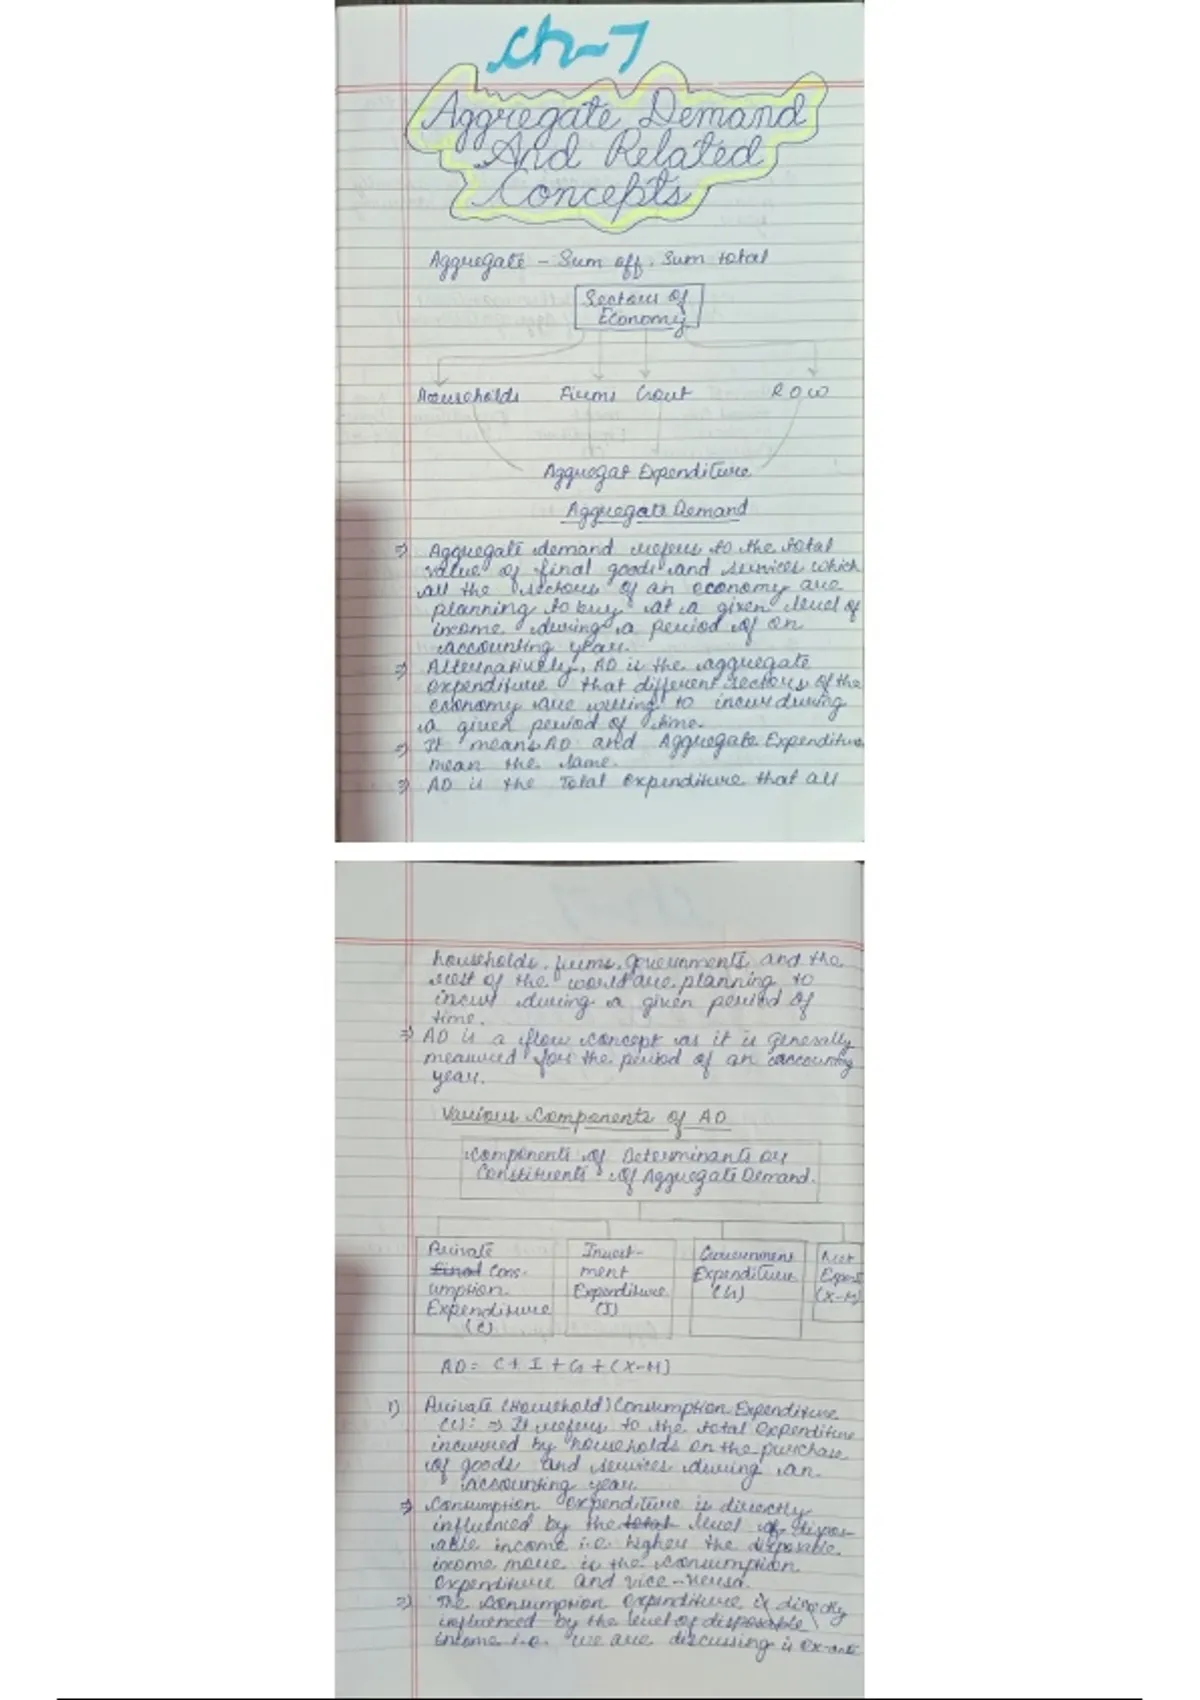 Ch-7
Aggregate Demand
And Related
Concepts
Aggregate - Sum off, Sum total
Sectors of
Economy
Households Firms Govt ROW
Aggregat Expenditure
Aggregate Demand
⇒ Aggregate demand refers to the total
value of final goods and services which
all the sectors of an economy are
planning to buy at a given level of
income during a period of an
accounting year.
⇒ Alternatively, AD is the aggregate
expenditure that different sectors of the
economy are willing to incur during
a given period of time.
⇒ It means AD and Aggregate Expenditure
mean the same.
⇒ AD is the Total expenditure that all
households, firms, governments and the
rest of the world are planning to
incur during a given period of
time.
⇒ AD is a flow concept as it is generally
measured for the period of an accounting
year.
Various Components of AD
Components of Determinants or
Constituents of Aggregate Demand.
Private
final Cons-
umption
Expenditure
(C)
Invest-
ment
Expenditure
(I)
Government
Expenditure
(G)
Net
Export
(X-M)
AD = C + I + G + (X-M)
1) Private (Household) Consumption Expenditure
(C): ⇒ It refers to the total expenditure
incurred by households on the purchase
of goods and services during an
accounting year.
⇒ Consumption expenditure is directly
influenced by the total level of dispos-
able income i.e. higher the disposable
income more is the consumption
expenditure and vice-versa.
⇒ The consumption expenditure is directly
influenced by the level of disposable
income i.e. we are discussing is ex-ante